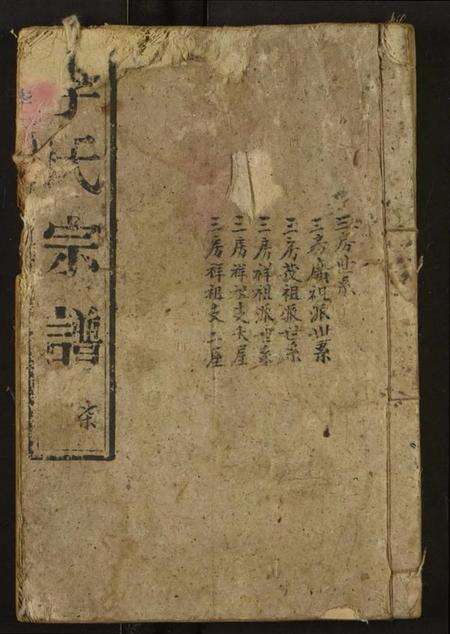 三房世系
三房廣祖派世系
三房茂祖派世系
三房祥祖派世系
三房祥祖支大屋
三房祥祖支二座
李氏宗譜
柒